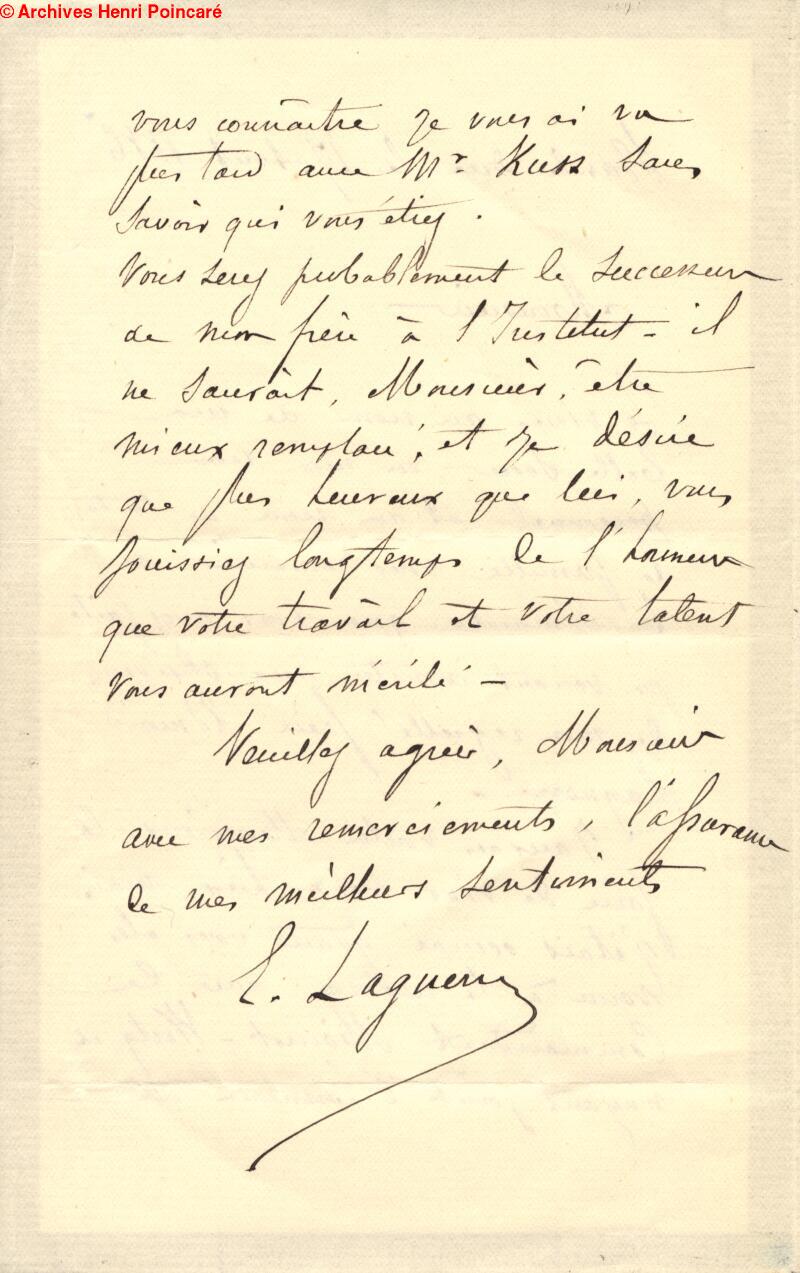 © Archives Henri Poincaré
vous connaître je vous ai vu
plus tard avec Mr. Kuss sans
savoir qui vous étiez.
Vous serez probablement le successeur
de mon frère à l'Institut - il
ne saurait, Monsieur, être
mieux remplacé, et je désire
que plus heureux que lui, vous
jouissiez longtemps de l'honneur
que votre travail et votre talent
vous auront mérité -
Veuillez agréer, Monsieur
avec mes remerciements, l'assurance
de mes meilleurs sentiments
E. Laguerre